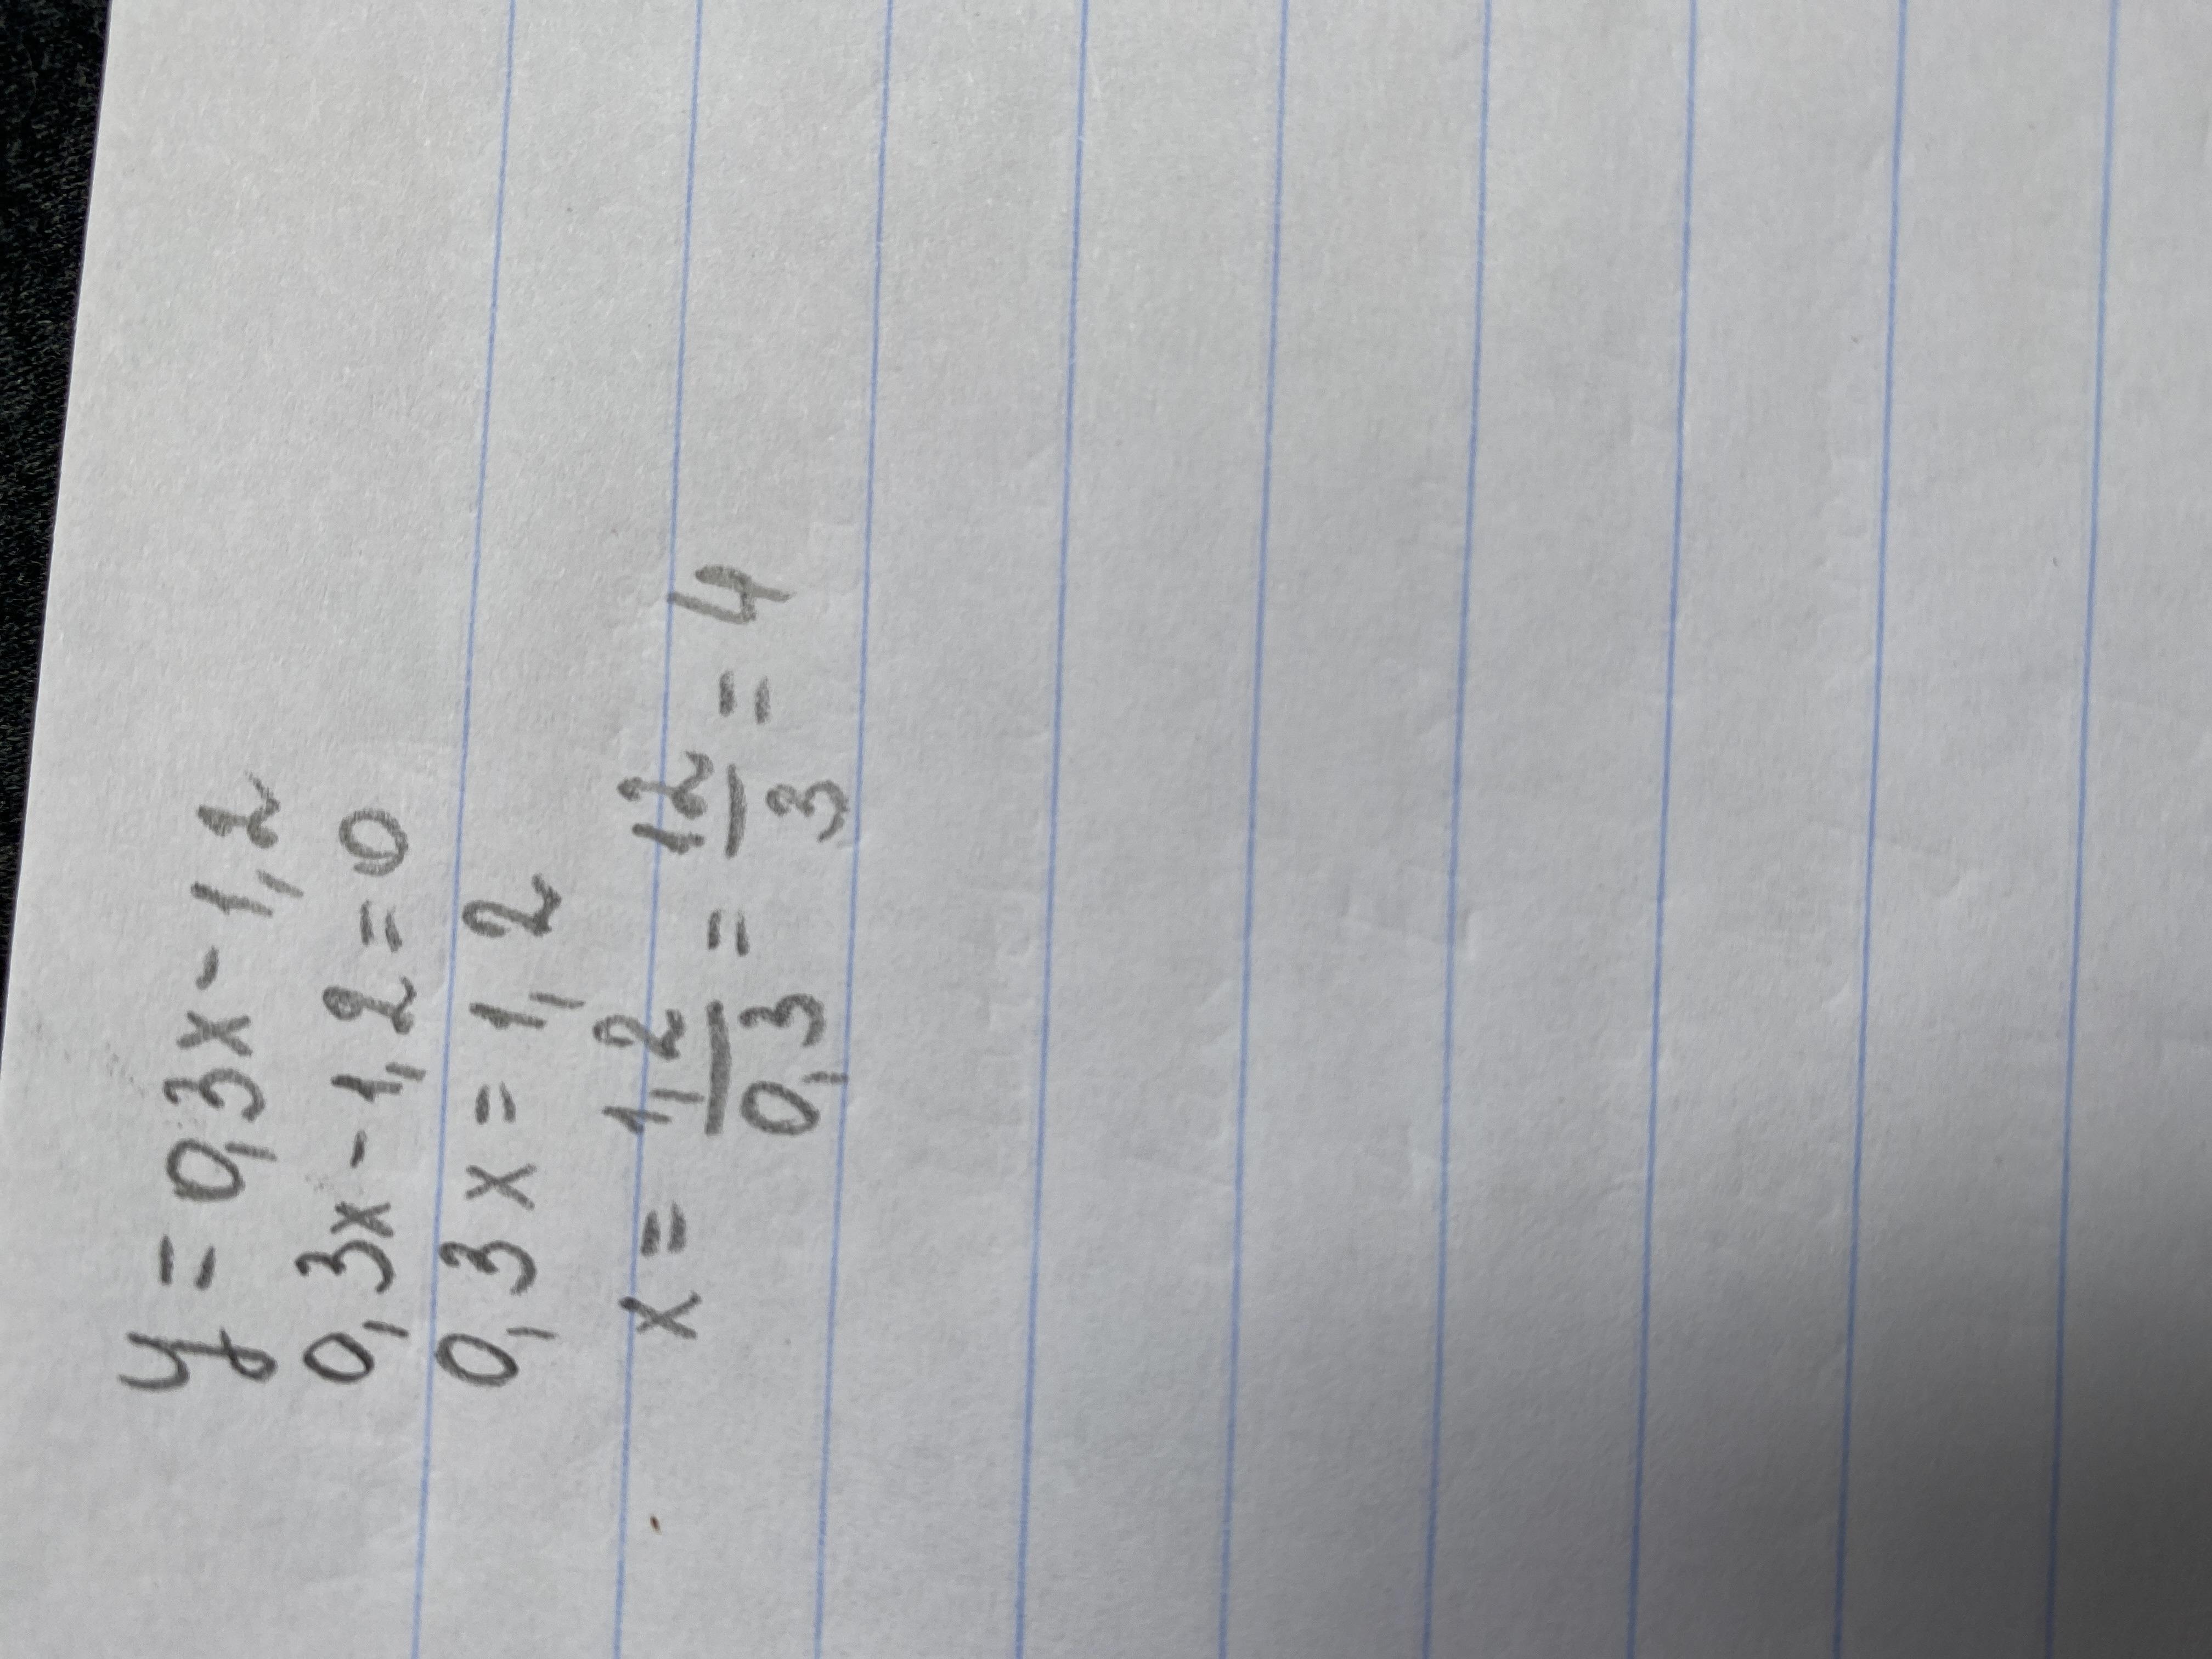 y = 0,3x - 1,2
0,3x - 1,2 = 0
0,3x = 1,2
x = 1,2/0,3 = 12/3 = 4